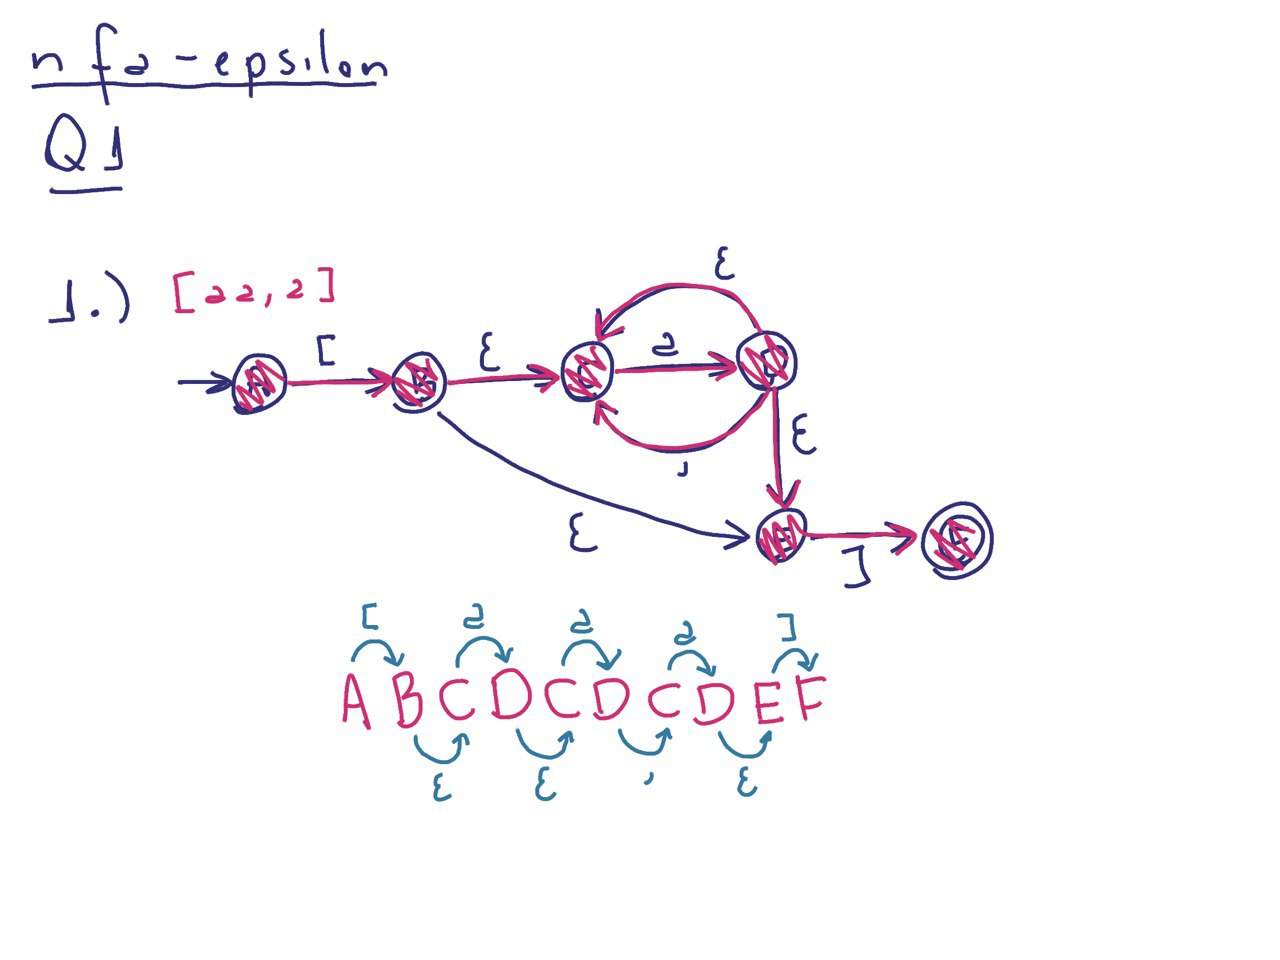 nfa-epsilon
Q1
1.) [aa,a]
ε
[ ε a
ε
,
ε ]
[ a a a ]
A B C D C D C D E F
ε ε , ε